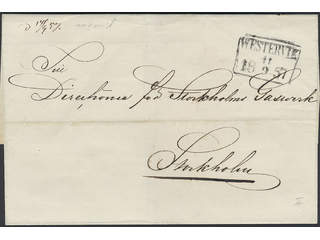 WESTERVIK
11
18 9 57
Till
Directionen för Stockholms Gaswerk
Stockholm